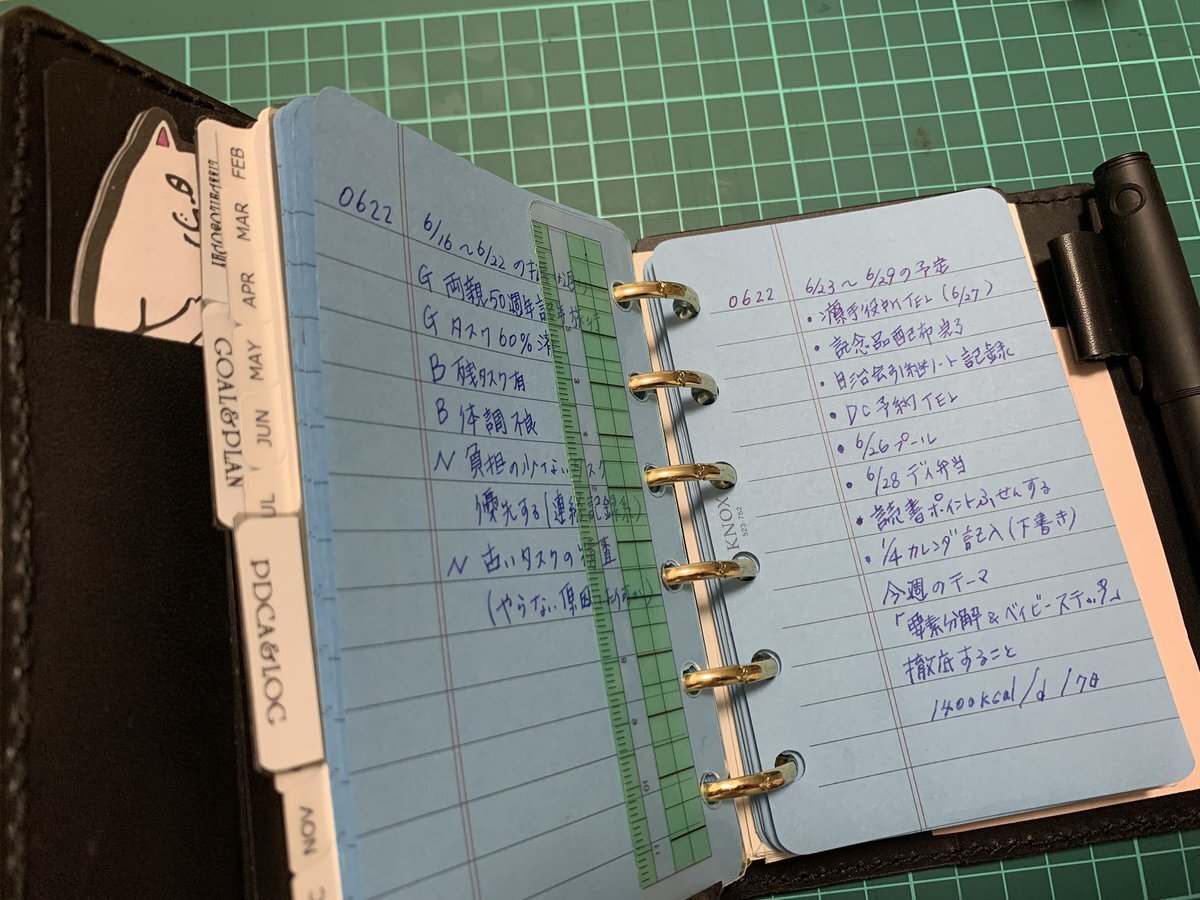 FEB
MAR
APR
MAY
JUN
GOAL&PLAN
PDCA&LOG
NOV
0622
6/16〜6/22の
G 両親50週年記
G タスク60%済
B 残タスク有
B 体調不良
N 負担の少ないタスク
優先する(連絡記録系)
N 古いタスクの精査
(やらない原因
KNOX
523-762
0622
6/23〜6/29の予定
・役所TEL(6/27)
・記念品配布完了
・自治会引継ノート記録
・DC予約TEL
・6/26プール
・6/28デイ弁当
・読書ポイントふせんする
・1/4カレンダ記入(下書き)
今週のテーマ
「要素分解&ベイビーステップ」
徹底すること
1400kcal/d /7日